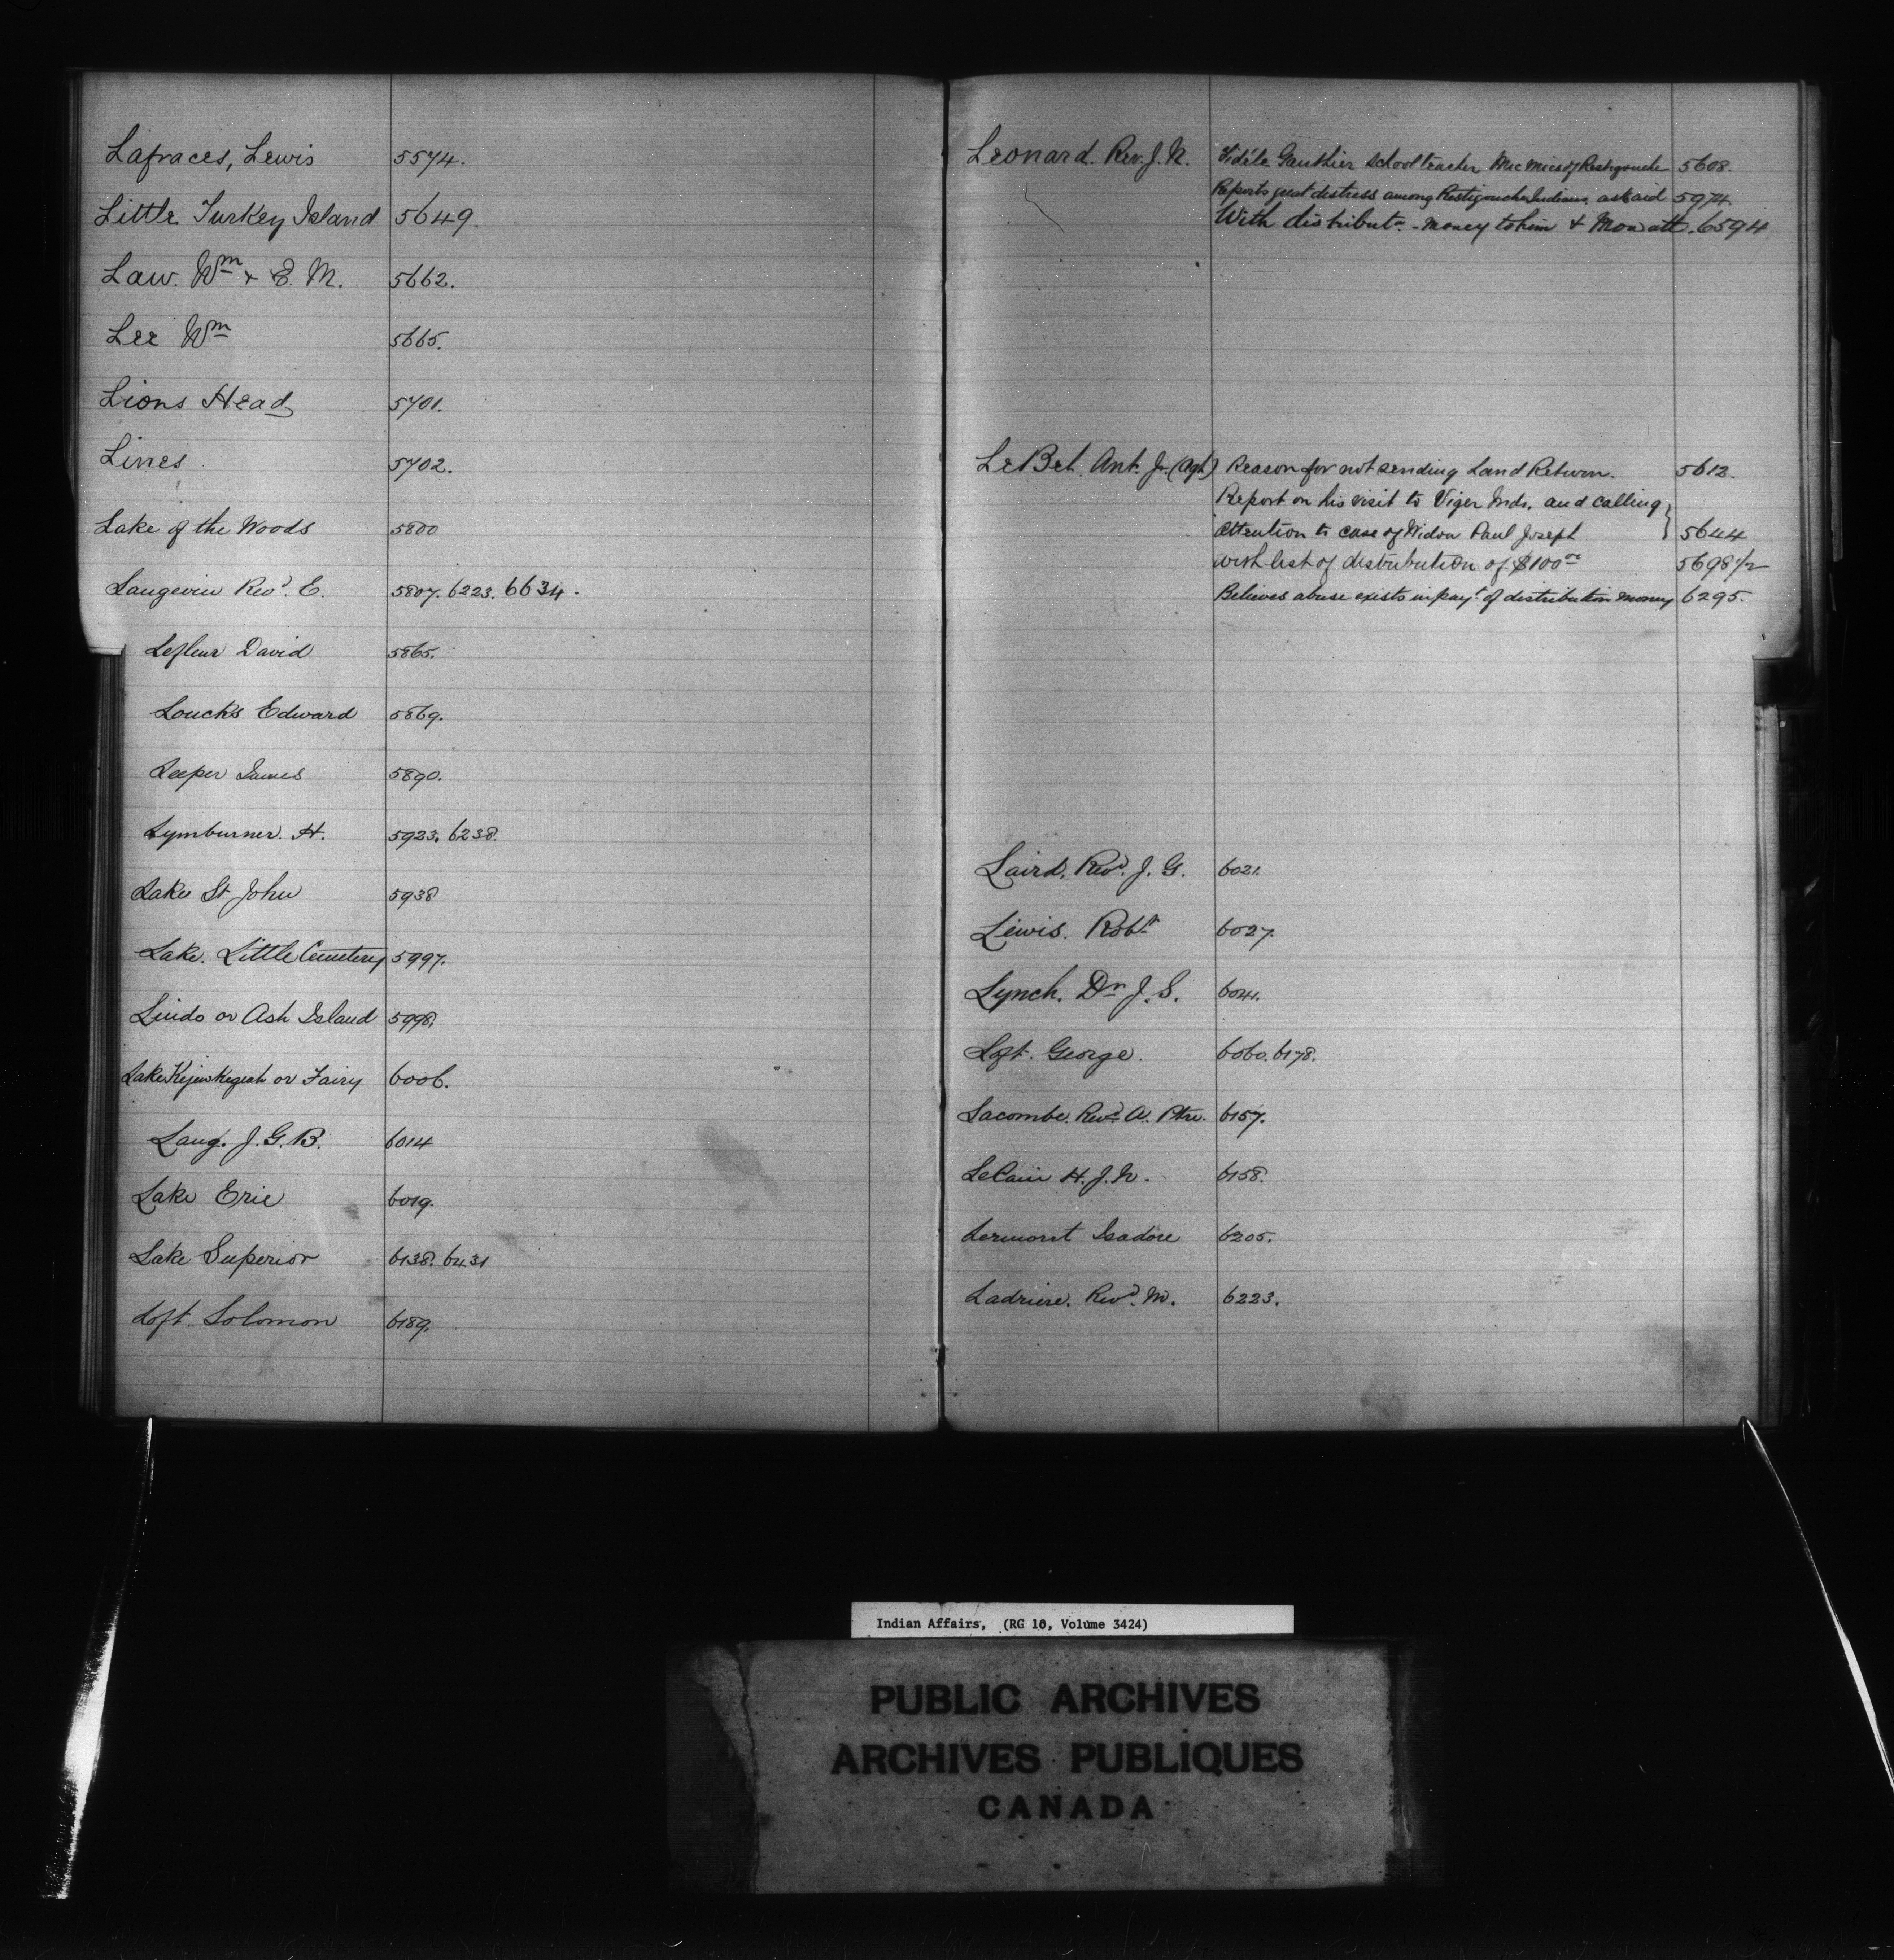 Lafraces, Lewis 5574.
Little Turkey Island 5649.
Law. Wm + E. M. 5662.
Lee Wm 5665.
Lions Head 5701.
Lines 5702.
Lake of the Woods 5800
Langevin Revd. E. 5807. 6223. 6634.
Lefleur David 5865.
Loucks Edward 5869.
Leeper James 5890.
Lymburner. H. 5923. 6238.
Lake St John 5938
Lake. Little Cemetery 5997.
Lindo or Ash Island 5998.
Lake Kejewkegeah or Fairy 6006.
Lang. J. G. B. 6014
Lake Erie 6019.
Lake Superior 6138. 6431
Loft. Solomon 6189.
Leonard. Rev. J. N. Fidéle Gauthier school teacher Mic Mics of Restigouche 5608.
Reports great distress among Restigouche Indians, ask aid 5974.
With distributn. - money to him + Mowatt. 6594
LeBel. Ant. Jr. (Agt) Reason for not sending Land Return. 5612.
Report on his visit to Viger Inds. and calling
attention to case of Widow Paul Joseph } 5644
with list of distribution of $100 00 5698 1/2
Believes abuse exists in payt. of distribution money 6295.
Laird, Revd. J. G. 6021.
Lewis. Robt 6027.
Lynch. Dr J. S. 6041.
Loft. George. 6060. 6178.
Lacombe. Revd A. Ptre. 6157.
LeCain H. J. N. 6158.
Lermont Isadore 6205.
Ladriere. Revd. M. 6223.
Indian Affairs, (RG 10, Volume 3424)
PUBLIC ARCHIVES
ARCHIVES PUBLIQUES
CANADA